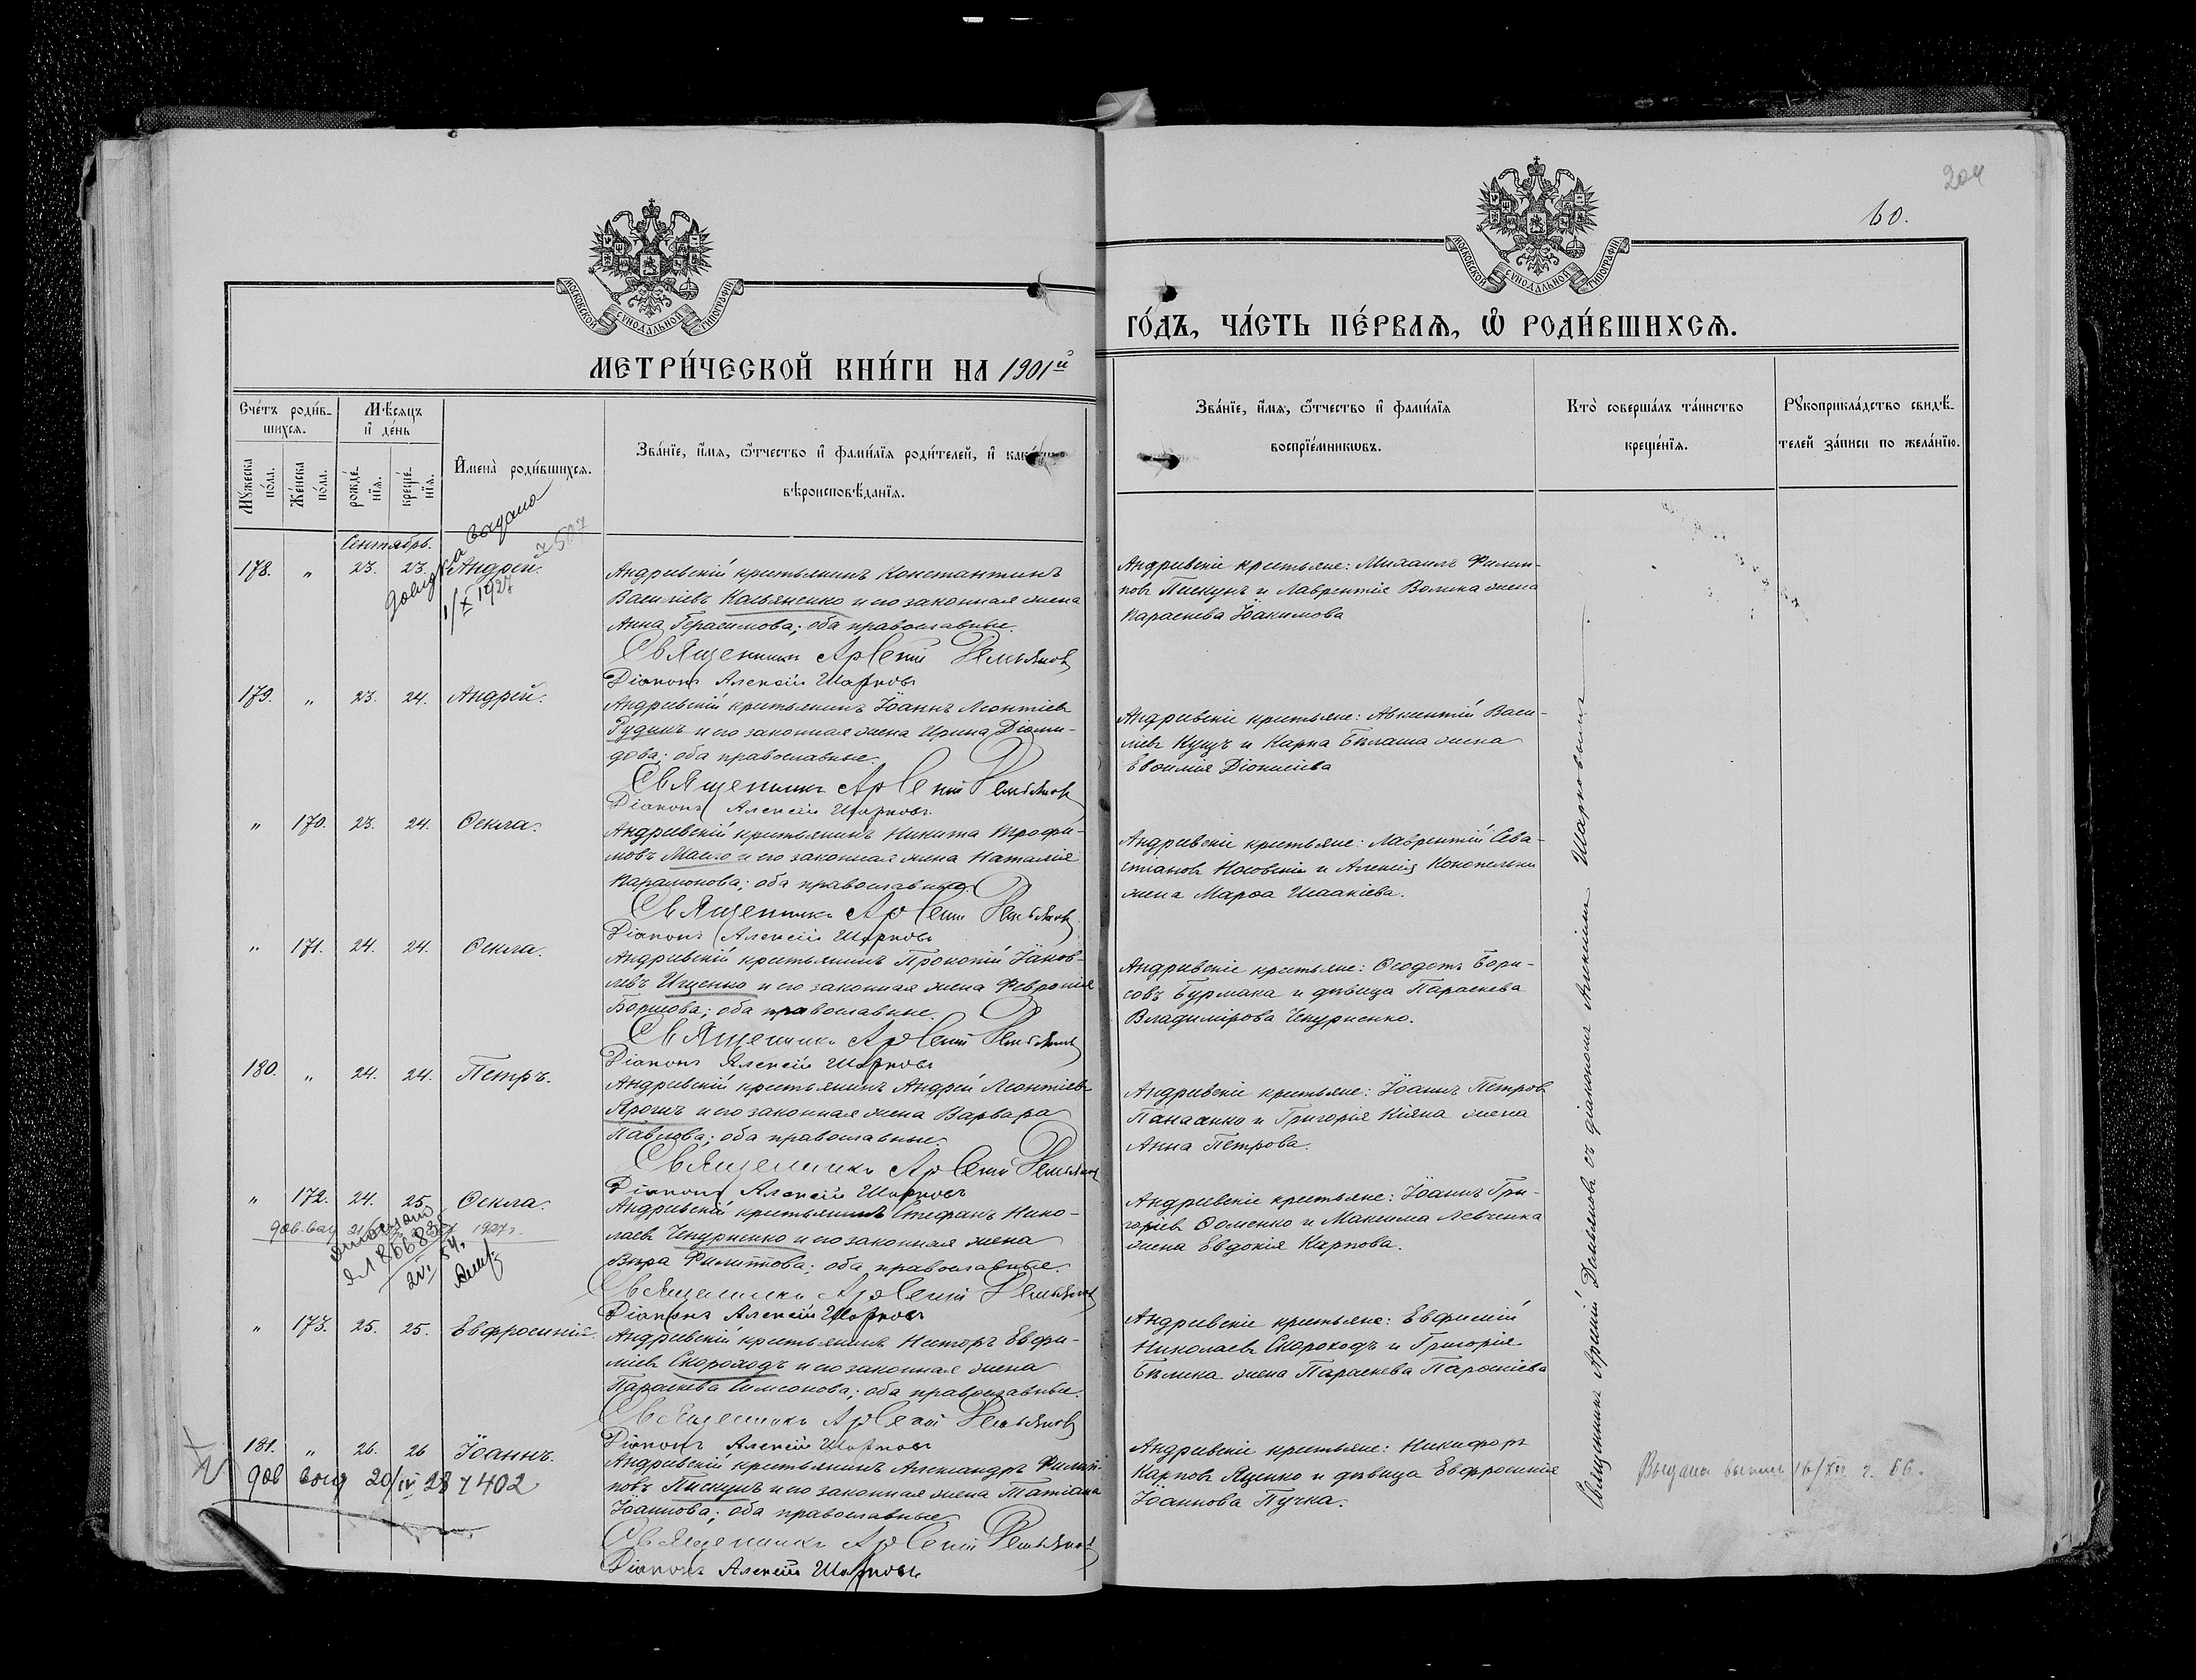 204
60.
МОСКОВСКОЙ СѴНОДАЛЬНОЙ ТИПОГРАФІИ
МОСКОВСКОЙ СѴНОДАЛЬНОЙ ТИПОГРАФІИ
МЕТРИ́ЧЕСКОЙ КНИ́ГИ НА 1901й
ГО́ДЪ, ЧА́СТЬ ПЕ́РВАѦ, Ѡ҆ РОДИ́ВШИХСѦ.
Сче́тъ роди́в-
шихсѧ.
Мѣ́сѧцъ
и҆ де́нь
Мꙋ́жеска
по́ла.
Же́нска
по́ла.
рожде́-
нїѧ.
креще́-
нїѧ.
И҆мена̀ роди́вшихсѧ.
Зва́нїе, и҆́мѧ, ѻ҆́тчество и҆ фами́лїѧ роди́телей, и҆
вѣроисповѣ́данїѧ.
Зва́нїе, и҆́мѧ, ѻ҆́тчество и҆ фами́лїѧ
воспрїе́мникѡвъ.
Кто̀ соверша́лъ та́инство
креще́нїѧ.
Рꙋкоприкла́дство свидѣ́-
телей за́писи по жела́нїю.
Сентябрь.
178. „ 23. 23. Андрей.
довідка видано
1/X 1927
Андреевскій крестьянинъ Константинъ
Василіевъ Касьяненко и его законная жена
Анна Герасимова; оба православные.
Священникъ Арсеній Демьяновъ
Діаконъ Алексій Шарковъ
Андреевскіе крестьяне: Михаилъ Филип-
повъ Пискунъ и Лаврентія Волика жена
Параскева Іоакимова
179. „ 23. 24. Андрей.
Андреевскій крестьянинъ Іоаннъ Леонтіевъ
Рудикъ и его законная жена Ирина Діоми-
дова; оба православные.
Священникъ Арсеній Демьяновъ
Діаконъ Алексій Шарковъ
Андреевскіе крестьяне: Авксентій Васи-
ліевъ Куцъ и Карпа Бѣлаша жена
Евѳимія Діонисіева
„ 170. 23. 24. Ѳекла.
Андреевскій крестьянинъ Никита Трофи-
мовъ и его законная жена Наталія
Парамонова; оба православные.
Священникъ Арсеній Демьяновъ
Діаконъ Алексій Шарковъ
Андреевскіе крестьяне: Лаврентій Сева-
стіановъ Носовскій и Алексія Конопельки
жена Марѳа Исаакіева.
„ 171. 24. 24. Ѳекла.
Андреевскій крестьянинъ Прокопій Іаков-
левъ Ищенко и его законная жена Февронія
Борисова; оба православные.
Священникъ Арсеній Демьяновъ
Діаконъ Алексій Шарковъ
Андреевскіе крестьяне: Ѳеодотъ Бори-
совъ Бурмака и дѣвица Параскева
Владимірова Чепурненко.
180. „ 24. 24. Петръ.
Андреевскій крестьянинъ Андрей Леонтіевъ
Ярошъ и его законная жена Варвара
Павлова; оба православные.
Священникъ Арсеній Демьяновъ
Діаконъ Алексій Шарковъ
Андреевскіе крестьяне: Іоаннъ Петровъ
Панасенко и Григорія Кіяна жена
Анна Петрова.
„ 172. 24. 25. Ѳекла.
1927 г.
Андреевскій крестьянинъ Стефанъ Нико-
лаевъ Чепурненко и его законная жена
Вѣра Филиппова; оба православные.
Священникъ Арсеній Демьяновъ
Діаконъ Алексій Шарковъ
Андреевскіе крестьяне: Іоаннъ Гри-
горіевъ Ѳоменко и Максима Левченка
жена Евдокія Карпова.
„ 173. 25. 25. Евфросинія.
Андреевскій крестьянинъ Несторъ Евфи-
міевъ Скороходъ и его законная жена
Параскева Симеонова; оба православные.
Священникъ Арсеній Демьяновъ
Діаконъ Алексій Шарковъ
Андреевскіе крестьяне: Евфимій
Николаевъ Скороходъ и Григорія
Бѣлика жена Параскева Парѳеніева
181. „ 26. 26 Іоаннъ.
дов вид 20/IV 28 7402
Андреевскій крестьянинъ Александръ Филип-
повъ Пискунъ и его законная жена Татіана
Іоаннова; оба православные
Священникъ Арсеній Демьяновъ
Діаконъ Алексій Шарковъ
Андреевскіе крестьяне: Никифоръ
Карповъ Яценко и дѣвица Евфросинія
Іоаннова Пучка.
Священникъ Арсеній Демьяновъ съ діакономъ Алексіемъ Шарковымъ
Выдана выпись 16/XII г. 66.